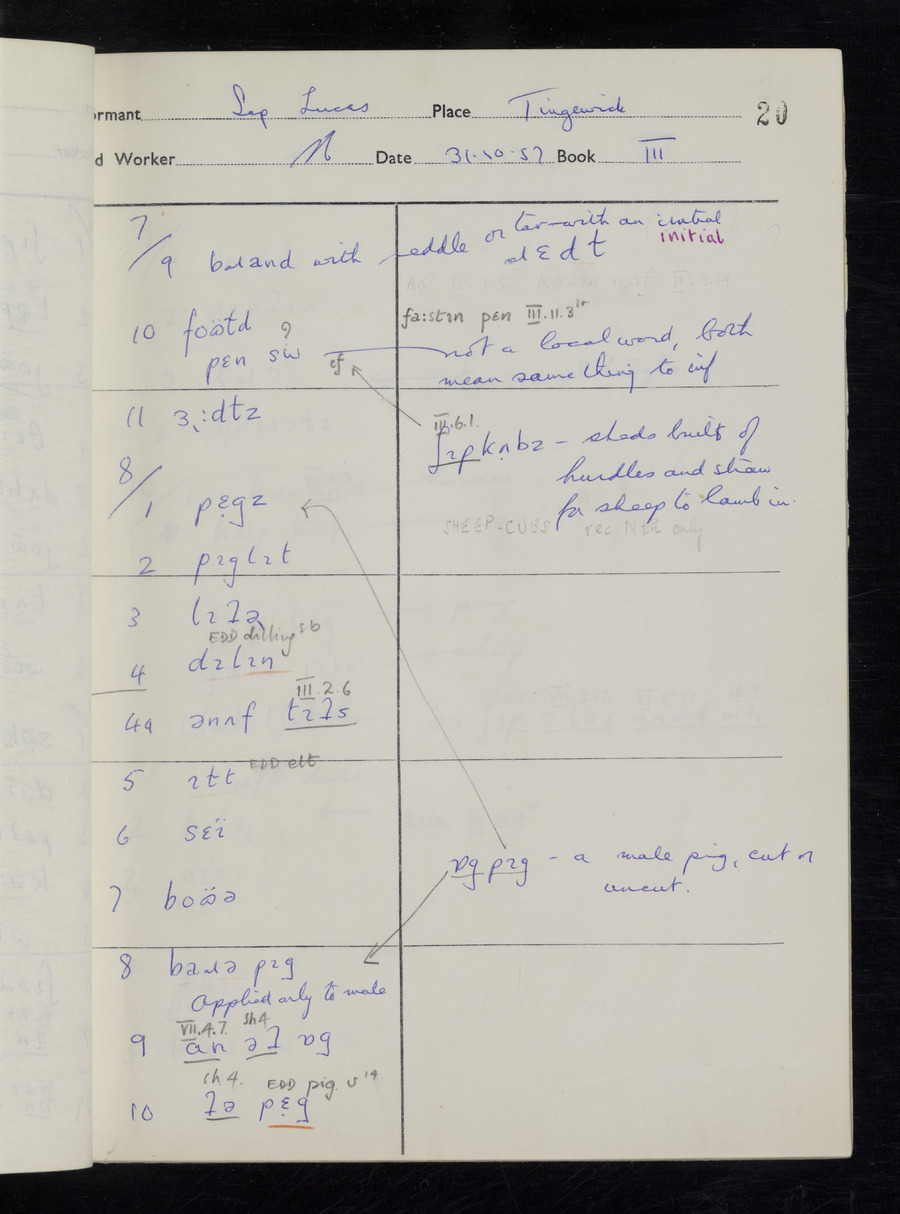 ormant Sep Lucas Place Tingewick 20
d Worker Date 31.10.57 Book III
7/9 brand with reddle or tar—with an initial
initial
ɹɛdɫ
fa:stɪn pen III.11.3
10 foöɫd ?
pen sɪü cf not a local word, both
mean same thing to inf
11 ɜ:dɫz
III.6.1.
ʃɪpkʌbz – sheds built of
hurdles and straw
for sheep to lamb in.
SHEEP-CUBS rec Nth only
8/1 pɛ̣gz
2 pɪglɪt
3 lɪɫə
EDD dilling sb
4 dɪlɪn
III.2.6
4a ənʌf tɪɫs
5 ɪɫt EDD elt
6 sɛï
ɒg pɪg – a male pig, cut or
uncut.
7 boöə
8 bəɹə pɪg
Applied only to male
VII.4.7 sh 4
9 an əɫ ɒg
ch.4. EDD pig v
10 ɫə pɛ̣g